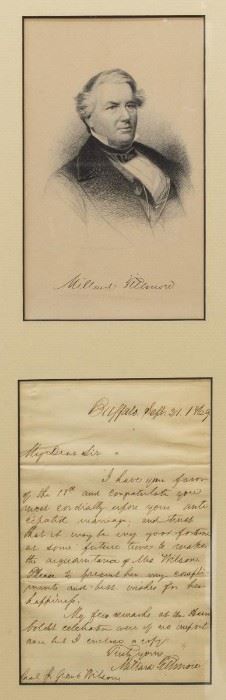 Millard Fillmore
Buffalo, Sept. 21. 1869
My Dear Sir,
I have your favor
of the 18th and congratulate you
most cordially upon your anti-
cipated marriage, and trust
that it may be my good fortune
at some future time to make
the acquaintance of Mrs. Wilson.
Please to present her my compli-
ments and best wishes for her
happiness.
My few remarks at the Hum-
boldt celebration were of no import-
ance but I enclose a copy
Truly yours
Millard Fillmore
Jas. Grant Wilson